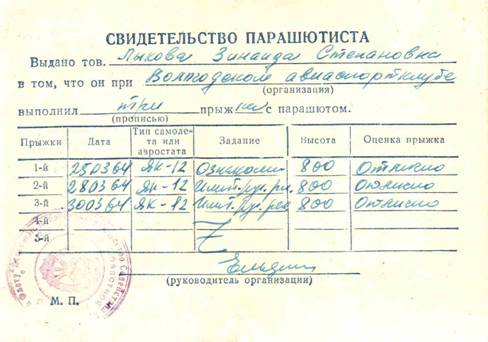 СВИДЕТЕЛЬСТВО ПАРАШЮТИСТА
Выдано тов. Лыкова Зинаида Степановна
в том, что он при Вологодском авиаспортклубе
(организация)
выполнил три прыжка с парашютом.
(прописью)
Прыжки Дата Тип самолета или аэростата Задание Высота Оценка прыжка
1-й 250364 ЯК-12 Ознаком. 800 Отлично
2-й 280364 Як-12 Имит. рук. 800 Отлично
3-й 300364 ЯК-12 Имит. рук. 800 Отлично
4-й
5-й
(руководитель организации)
М. П.